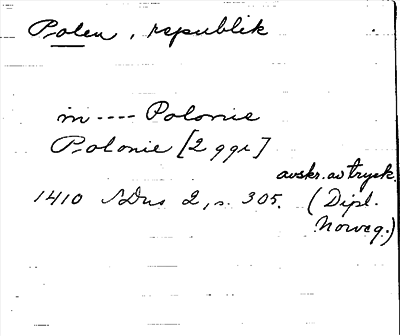 Polen, republik
in ---- Polonie
Polonie [2 ggr]
avskr. av tryck.
1410 SDns 2, s. 305. (Dipl.
Norveg.)